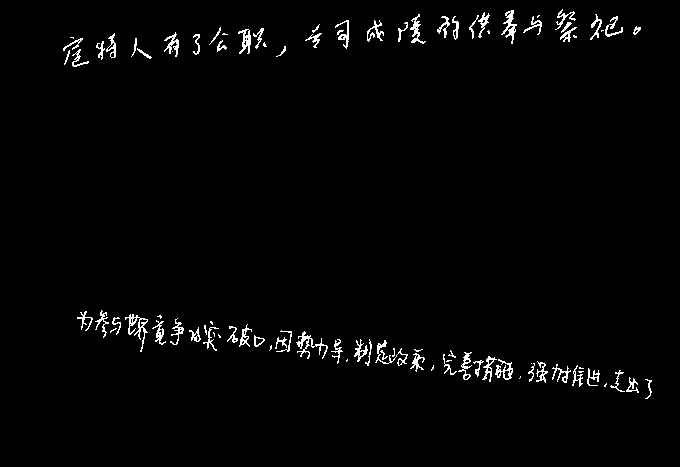 扈特人有了公职，专司成陵的供奉与祭祀。
为参与世界竟争的突破口，因势力导，制定政策，完善措施，强力推进，走出了